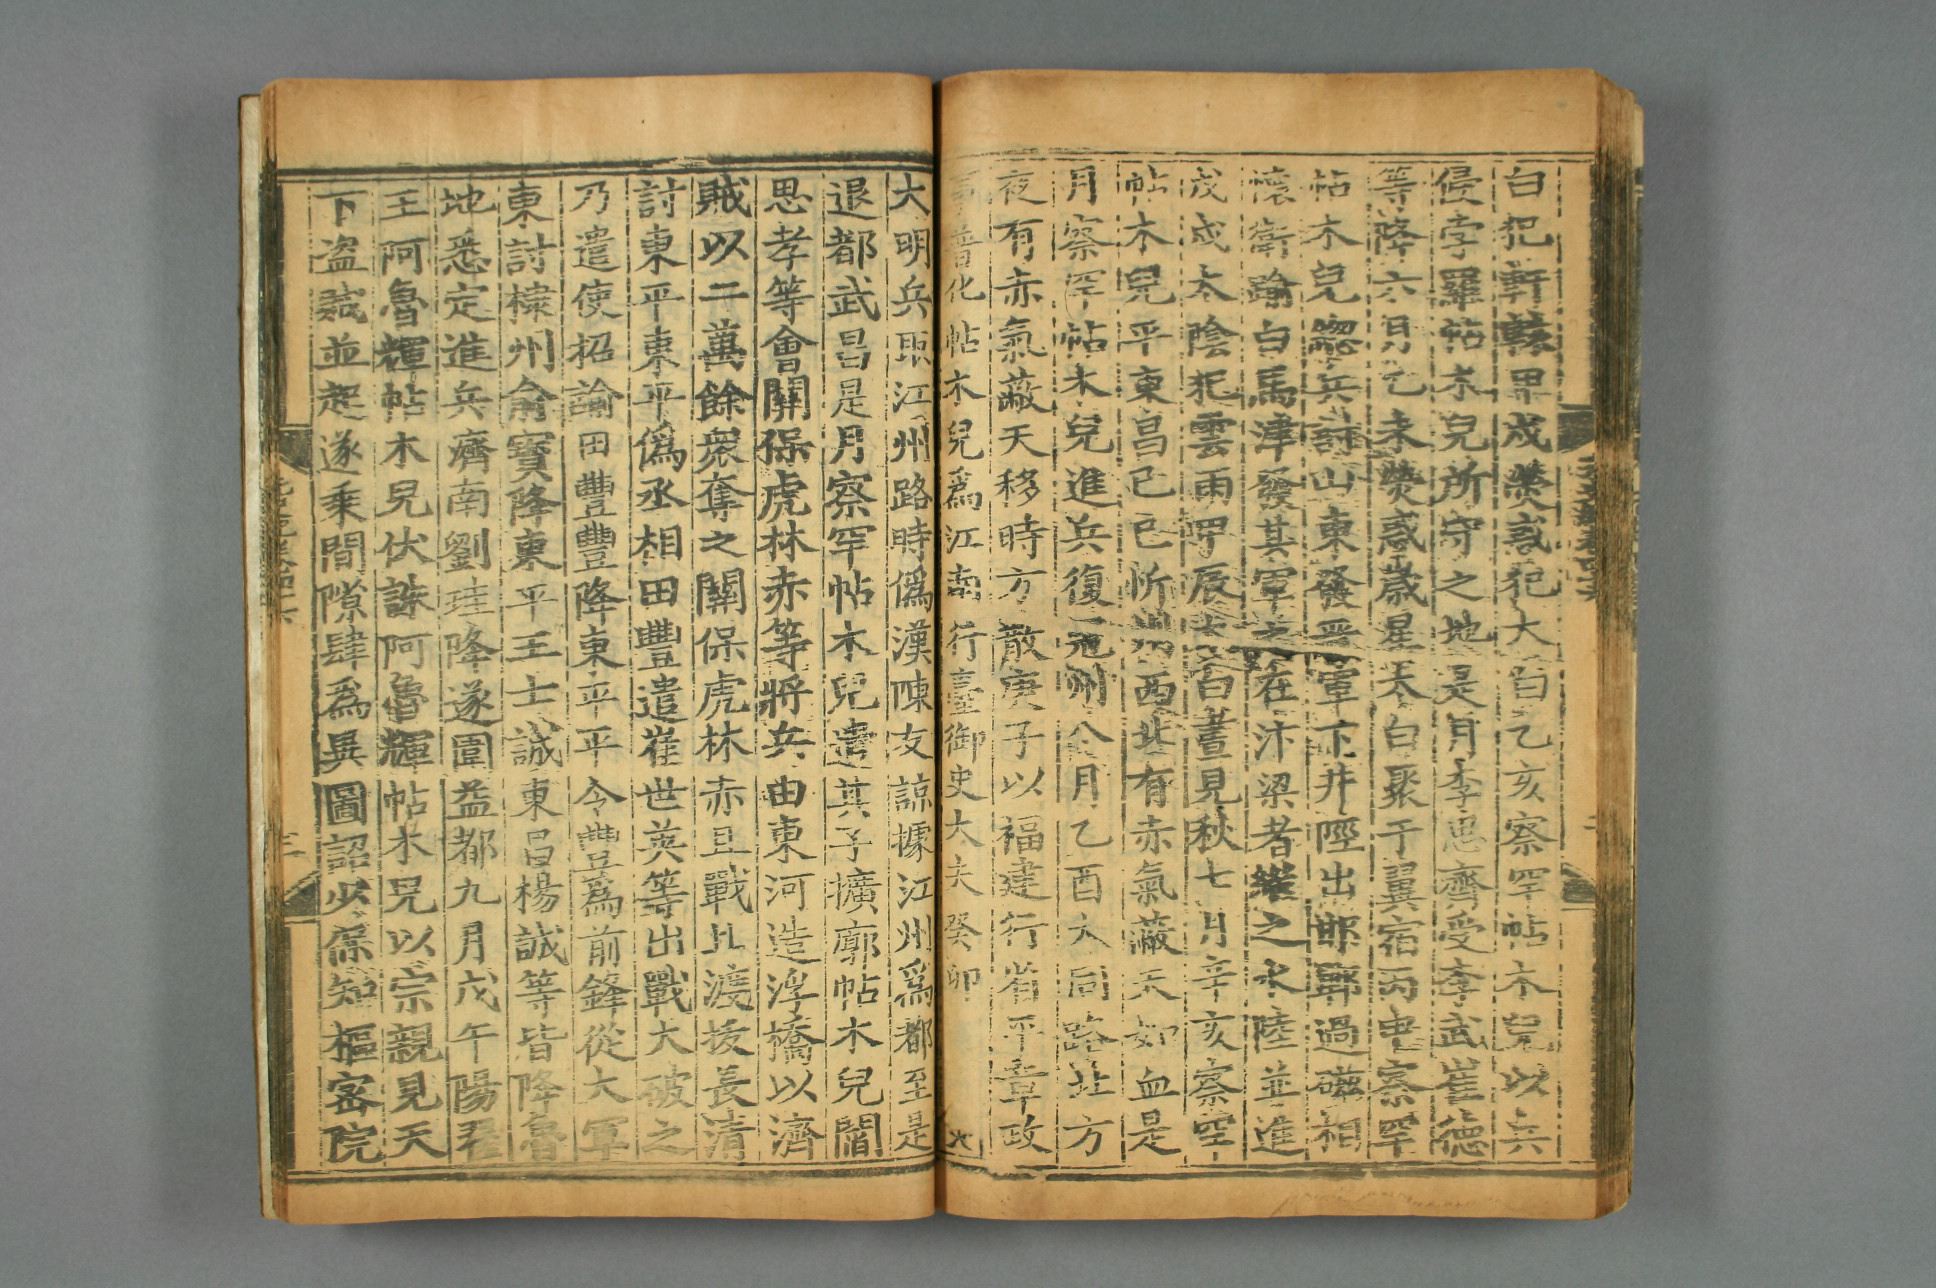 白犯軒轅甲戌熒惑犯太白乙亥察罕帖木兒以兵
侵孛羅帖木兒所守之地是月李思齊受李武崔德
等降六月乙未熒惑歲星太白聚于翼宿丙申察罕
帖木兒總兵討山東發晋軍下井陘出邯鄲過磁相
懷衛踰白馬津發其軍之在汴梁者繼之水陸並進
戊戌太陰犯雲雨甲辰太白晝見秋七月辛亥察罕
帖木兒平東昌己巳忻州西北有赤氣蔽天如血是
月察罕帖木兒進兵復冠州八月乙酉大同路北方
夜有赤氣蔽天移時方散庚子以福建行省平章政
普化帖木兒爲江南行臺御史大夫癸卯
大明兵取江州路時僞漢陳友諒據江州爲都至是
退都武昌是月察罕帖木兒遣其子擴廓帖木兒閻
思孝等會關保虎林赤等將兵由東河造浮橋以濟
賊以二萬餘衆奪之關保虎林赤且戰且渡拔長清
討東平東平僞丞相田豐遣崔世英等出戰大破之
乃遣使招諭田豐豐降東平平令豐爲前鋒從大軍
東討棣州俞寶降東平王士誠東昌楊誠等皆降魯
地悉定進兵濟南劉珪降遂圍益都九月戊午陽翟
王阿魯輝帖木兒伏誅阿魯輝帖木兒以宗親見天
下盜賊並起遂乘間隙肆爲異圖詔少保知樞密院